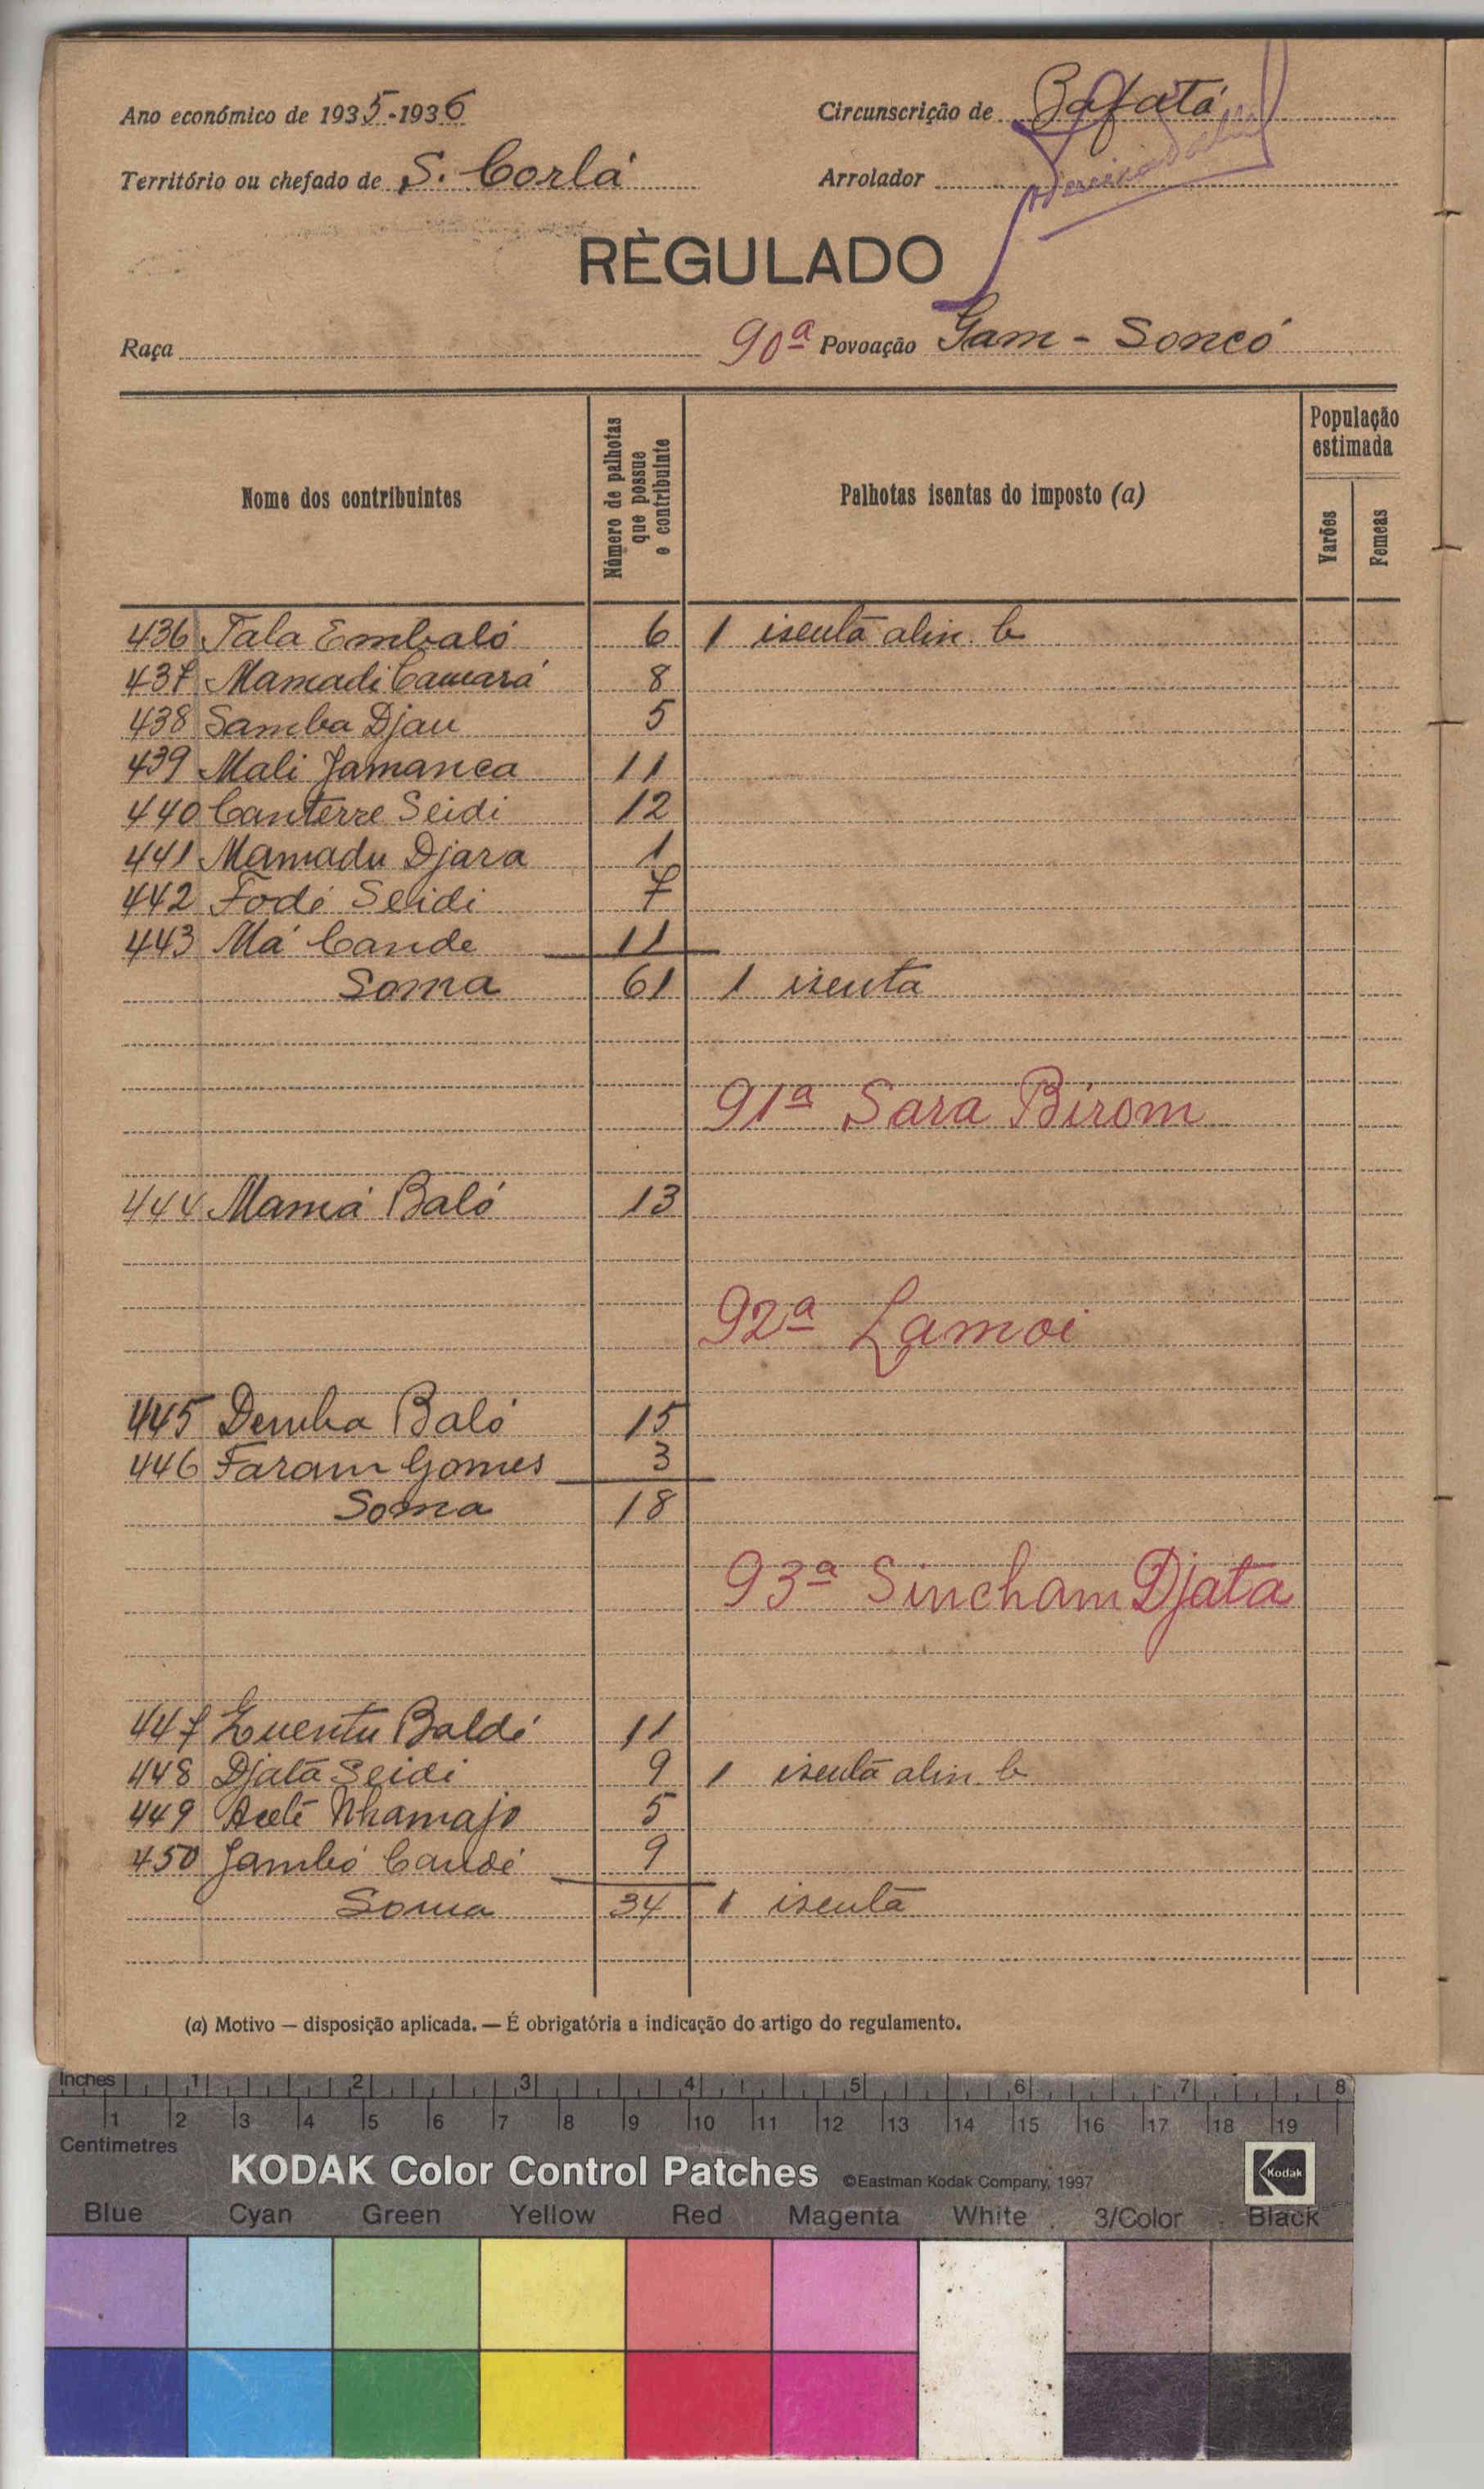 Ano económico de 1935-1936 Circunscrição de Bafatá
Território ou chefado de S. Corlá Arrolador
RÈGULADO
Raça 90ª Povoação Gam - Soncó
Nome dos contribuintes
Número de palhotas que possue o contribuinte
Palhotas isentas do imposto (a)
População estimada
Varões
Femeas
436 Tala Embaló 6 1 isenta alin. b
437 Mamadi Camará 8
438 Samba Djau 5
439 Mali Jamanca 11
440 Canterre Seidi 12
441 Mamadu Djara 1
442 Fodé Seidi 7
443 Má Cande 11
Soma 61 1 isenta
91ª Sara Birom
444 Mamá Baló 13
92ª Lamoi
445 Demba Baló 15
446 Faram Gomes 3
Soma 18
93ª Sincham Djata
447 Baldé 11
448 Djatá Seidi 9 1 isenta alin. b
449 Nhamajo 5
450 Jambó Candé 9
Soma 34 1 isenta
(a) Motivo — disposição aplicada. — É obrigatória a indicação do artigo do regulamento.
Inches 1 2 3 4 5 6 7 8
1 2 3 4 5 6 7 8 9 10 11 12 13 14 15 16 17 18 19
Centimetres
KODAK Color Control Patches ©Eastman Kodak Company, 1997 Kodak
Blue Cyan Green Yellow Red Magenta White 3/Color Black